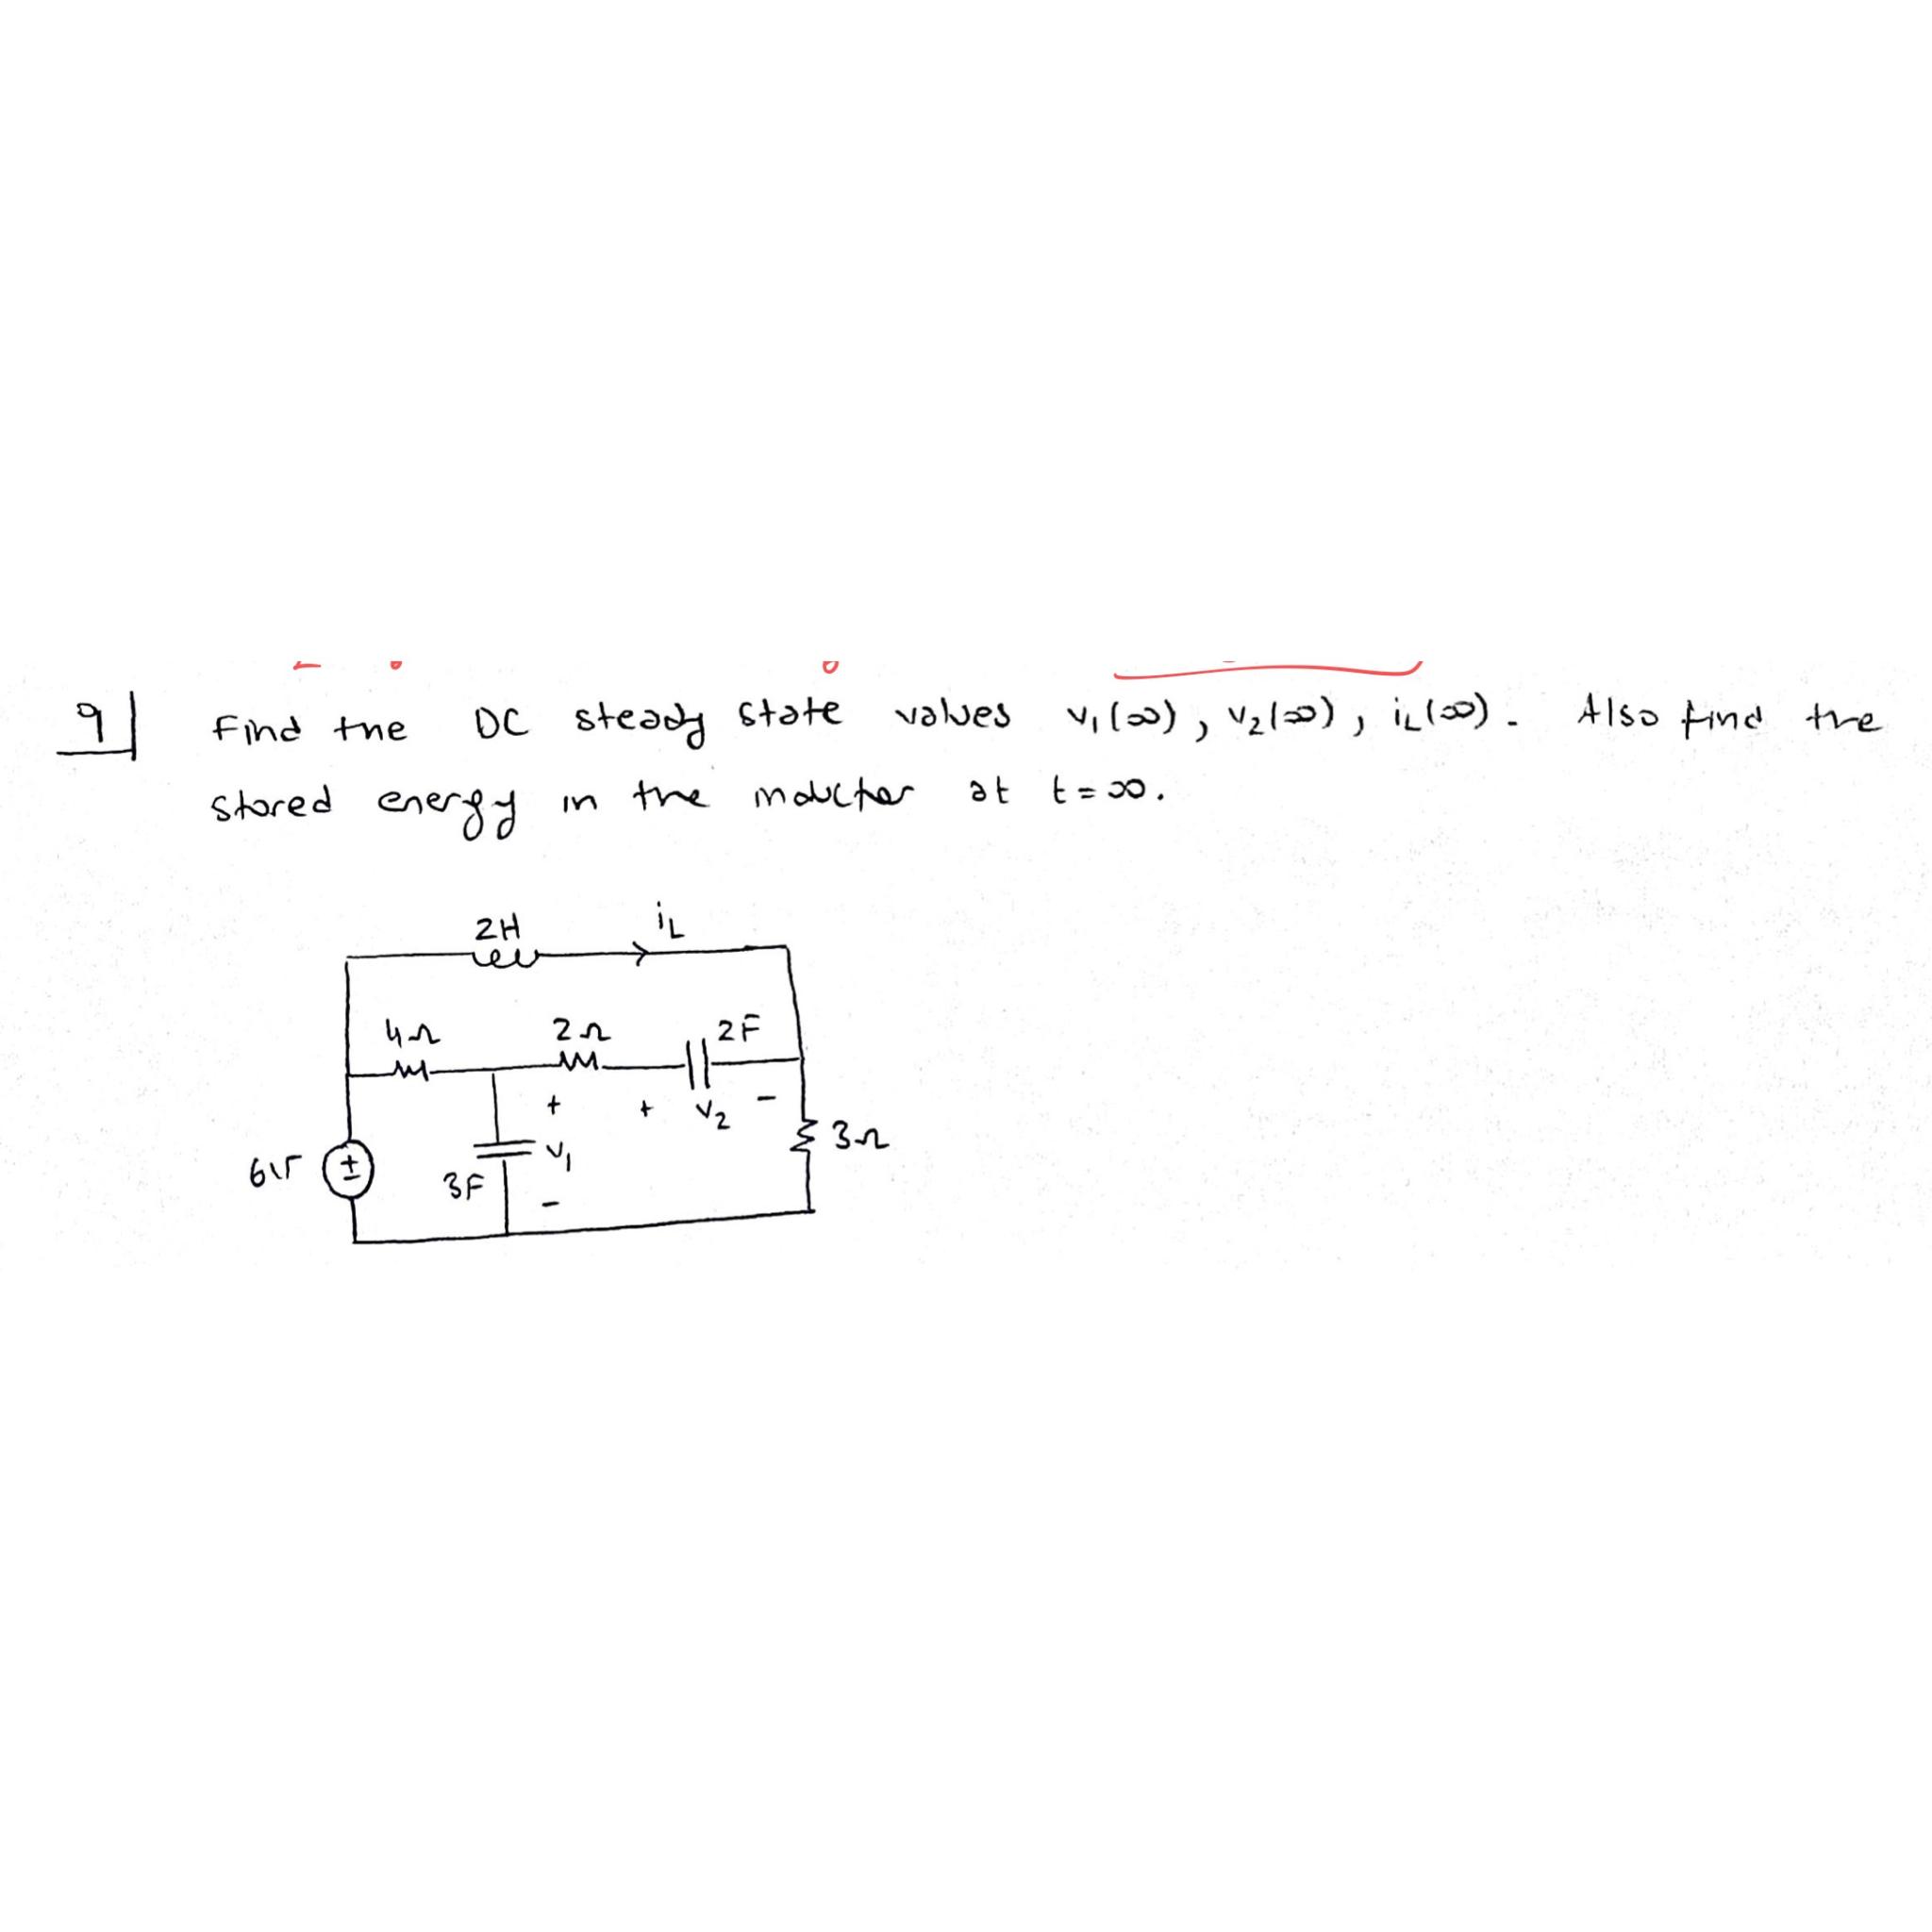 9
Find the DC steady state values v₁(∞), v₂(∞), iL(∞). Also find the
stored energy in the inductor at t=∞.
2H iL
4Ω 2Ω 2F
+ + v₂ -
6V ± 3F v₁ 3Ω
-